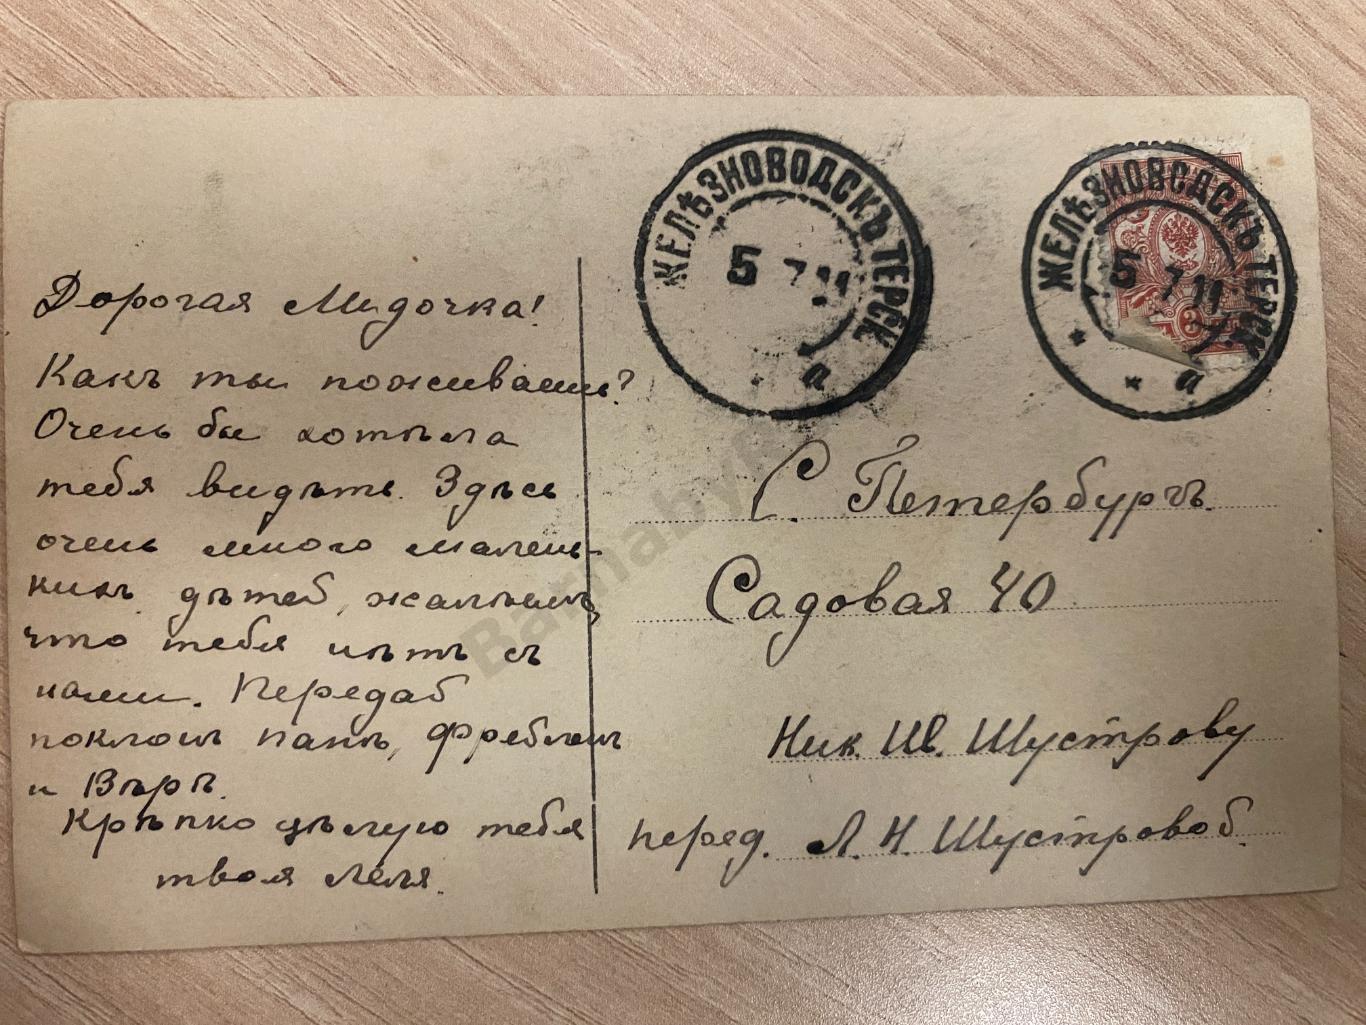 Дорогая Лидочка!
Какъ ты поживаешь?
Очень бы хотѣла
тебя видѣть. Здѣсь
очень много малень-
кихъ дѣтей, жалѣемъ,
что тебя нѣтъ съ
нами. Передай
поклонъ папѣ, фребелихѣ
и Вѣрѣ.
Крѣпко цѣлую тебя
твоя Лёля.
ЖЕЛѢЗНОВОДСКЪ ТЕРСК.
5 7 11
а
ЖЕЛѢЗНОВОДСКЪ ТЕРСК.
5 7 11
а
3
С. Петербургъ.
Садовая 40
Ник. Ив. Шустрову
перед. Л. Н. Шустровой.